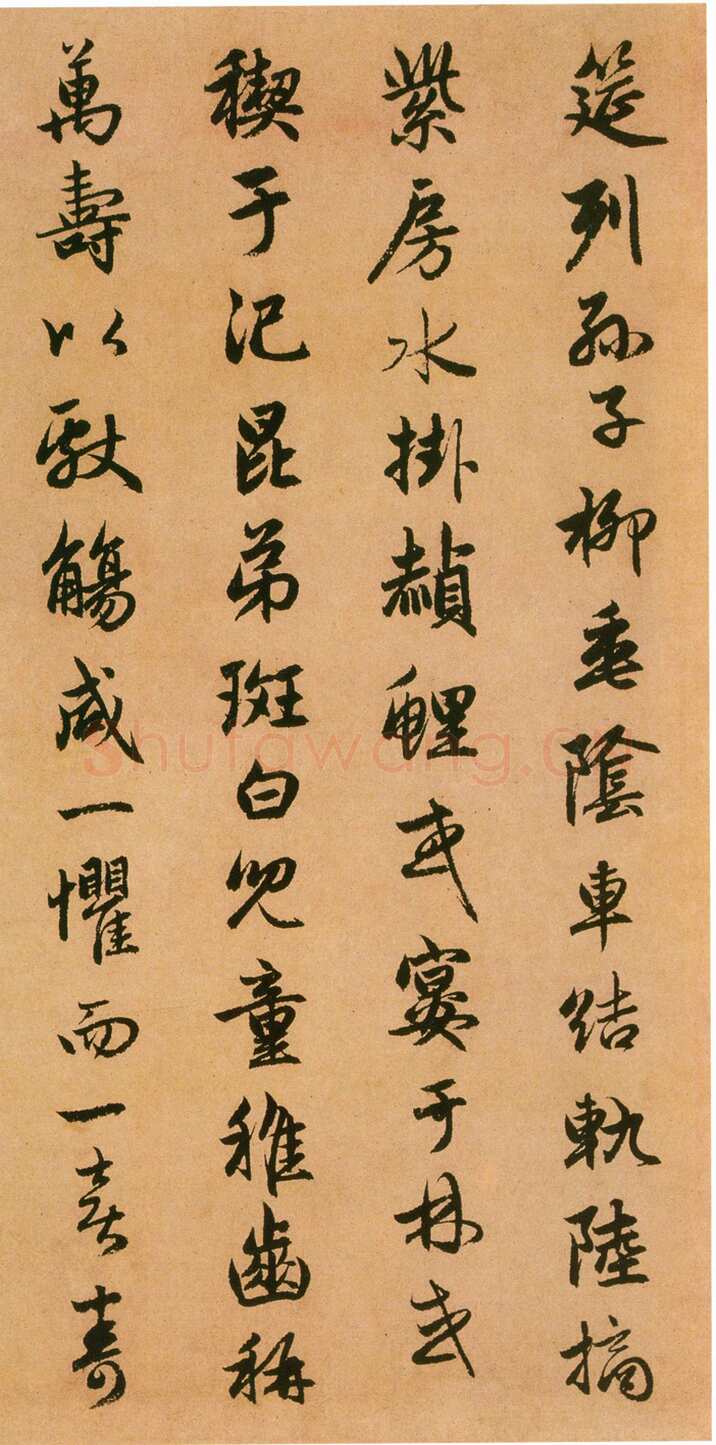 筵列孫子柳垂陰車結軌陸摘
紫房水掛赬鯉或宴于林或
禊于汜昆弟斑白兒童稚齒稱
萬壽以獻觴咸一懼而一喜壽
shufawang.cn